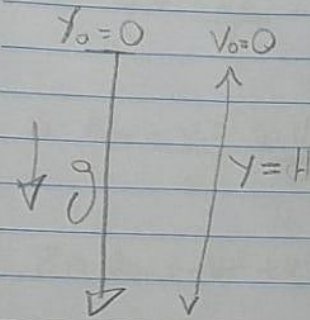 Y₀ = 0 V₀=0
g
y = H